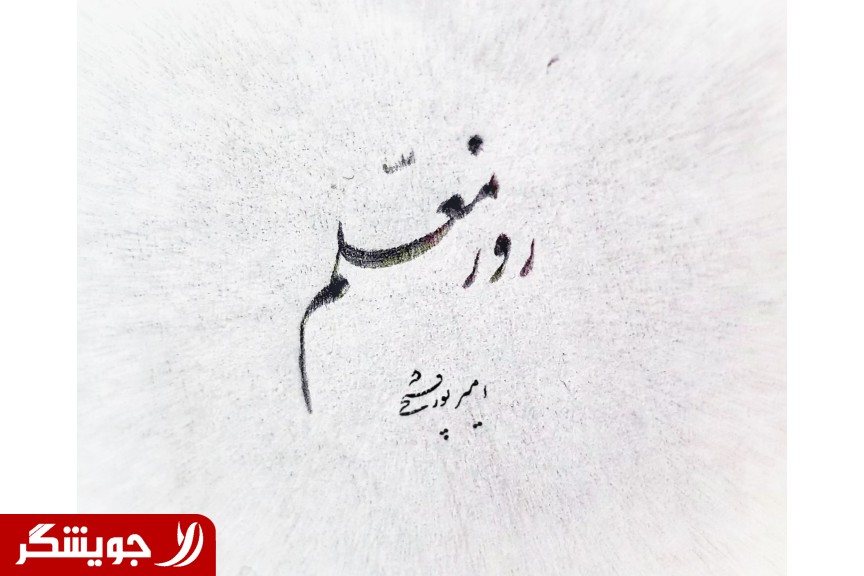 روز معلّم
امیر پورشیخ
جویشگر